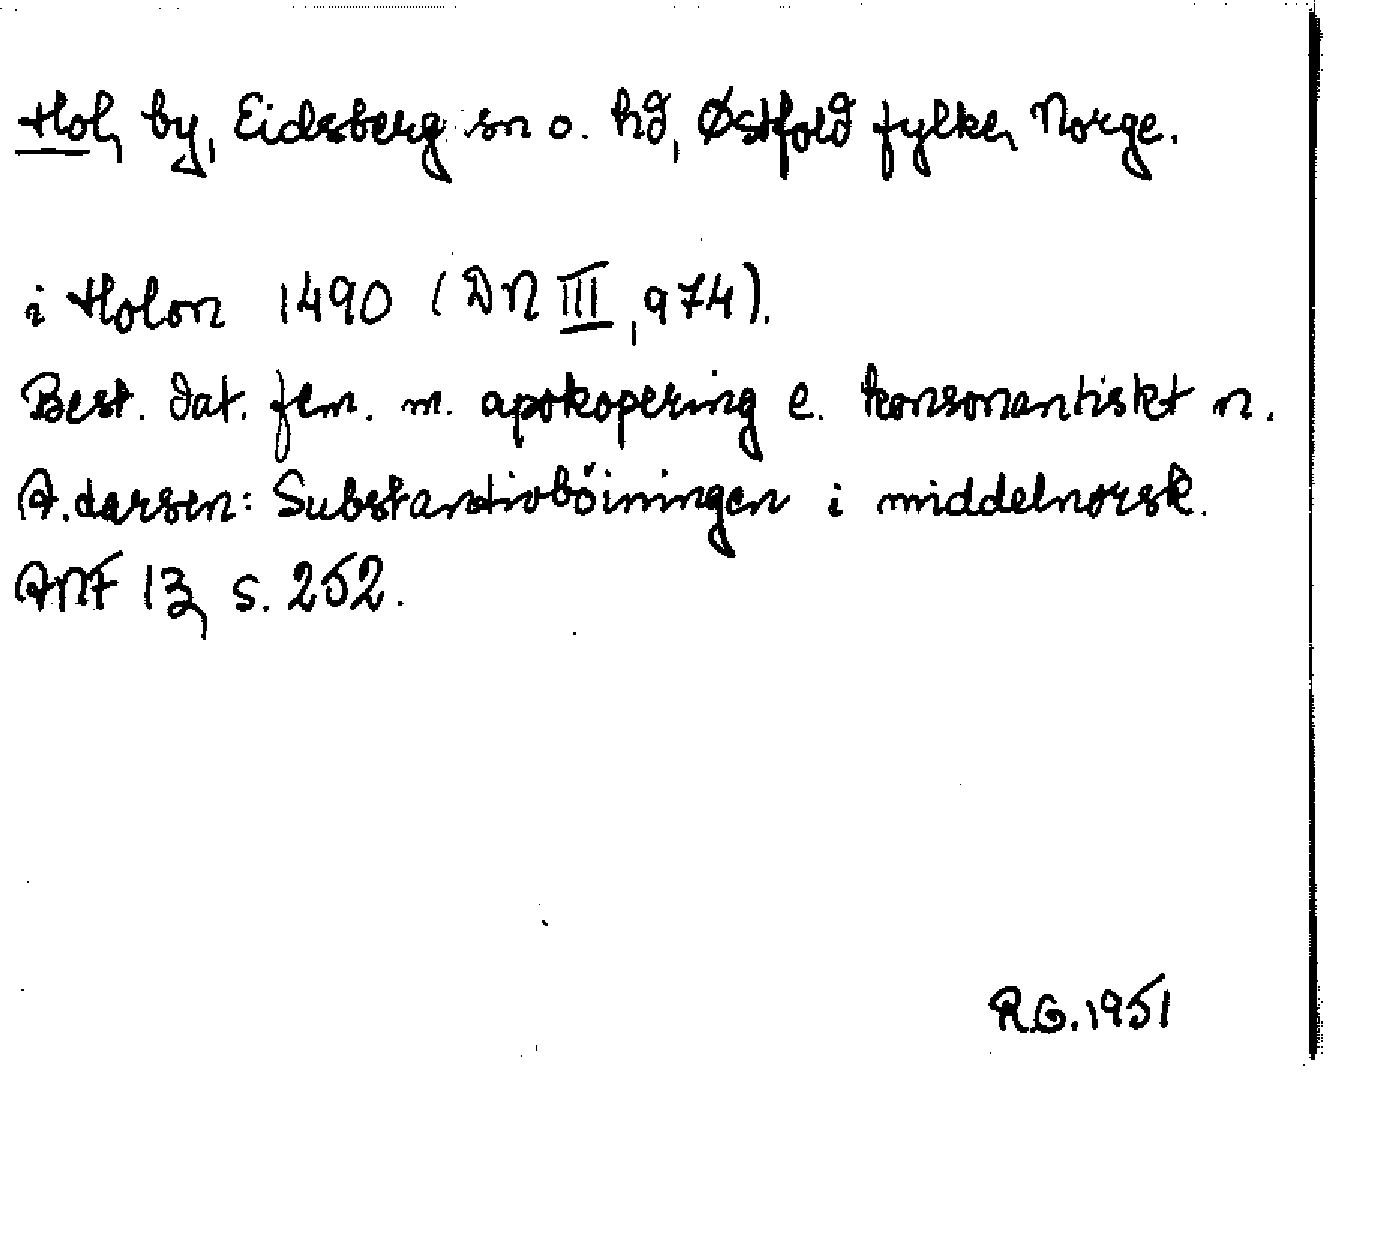 Hol, by, Eidsberg sn o. hd, Østfold fylke, Norge.
i Holon 1490 (DN III, 974).
Best. dat. fem. m. apokopering e. konsonantiskt n.
A. Larsen: Substantivböiningen i middelnorsk.
ANF 13, s. 252.
R.G. 1951